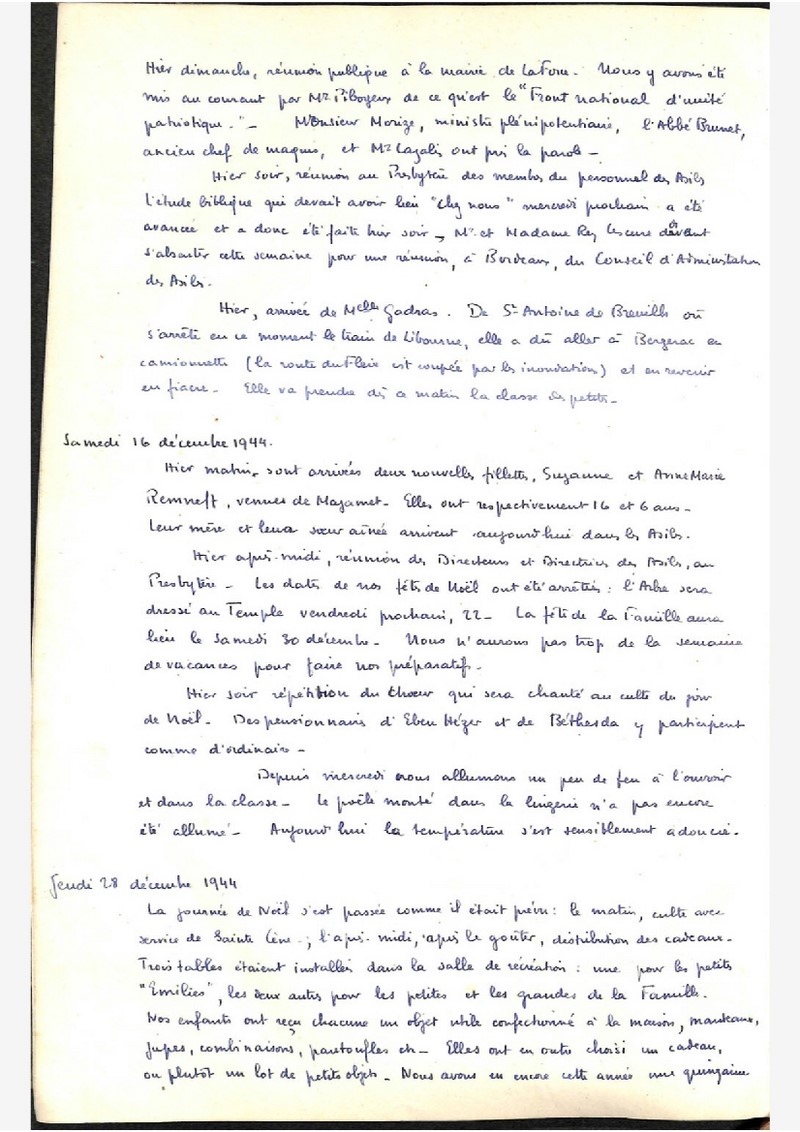 Hier dimanche, réunion publique à la mairie de Laforce. Nous y avons été
mis au courant par Mr Piboyeux de ce qu'est le "Front national d'unité
patriotique." - Monsieur Morize, ministre plénipotentiaire, l'Abbé Brunet,
ancien chef de maquis, et Mr Cazalis ont pris la parole -
Hier soir, réunion au Presbytère des membres du personnel des Asiles
L'étude biblique qui devait avoir lieu "Chez nous" mercredi prochain a été
avancée et a donc été faite hier soir - Mr et Madame Rey Lescure devant
s'absenter cette semaine pour une réunion, à Bordeaux, du Conseil d'Administration
des Asiles.
Hier, arrivée de Melle Gadras. De St Antoine de Breuilh où
s'arrête en ce moment le train de Libourne, elle a dû aller à Bergerac en
camionnette (la route du Fleix est coupée par les inondations) et en revenir
en fiacre. Elle va prendre dès ce matin la classe des petites -
Samedi 16 décembre 1944.
Hier matin, sont arrivées deux nouvelles fillettes, Suzanne et Anne Marie
venues de Mazamet - Elles ont respectivement 16 et 6 ans -
Leur mère et leur sœur aînée arrivent aujourd'hui dans les Asiles.
Hier après-midi, réunion des Directeurs et Directrices des Asiles, au
Presbytère - Les dates de nos fêtes de Noël ont été arrêtées : l'Arbre sera
dressé au Temple vendredi prochain, 22 - La fête de la Famille aura
lieu le Samedi 30 décembre - Nous n'aurons pas trop de la semaine
de vacances pour faire nos préparatifs -
Hier soir répétition du chœur qui sera chanté au culte du jour
de Noël - Des pensionnaires d'Eben Hézer et de Béthesda y participent
comme d'ordinaire -
Depuis mercredi nous allumons un peu de feu à l'ouvroir
et dans la classe - Le poêle monté dans la lingerie n'a pas encore
été allumé - Aujourd'hui la température s'est sensiblement adoucie.
Jeudi 28 décembre 1944
La journée de Noël s'est passée comme il était prévu : le matin, culte avec
service de Sainte Cène - ; l'après-midi, après le goûter, distribution des cadeaux -
Trois tables étaient installées dans la salle de récréation : une pour les petites
"Emilies", les deux autres pour les petites et les grandes de la Famille.
Nos enfants ont reçu chacune un objet utile confectionné à la maison, manteaux,
jupes, combinaisons, pantoufles etc - Elles ont en outre choisi un cadeau,
ou plutôt un lot de petits objets - Nous avons eu encore cette année une quinzaine